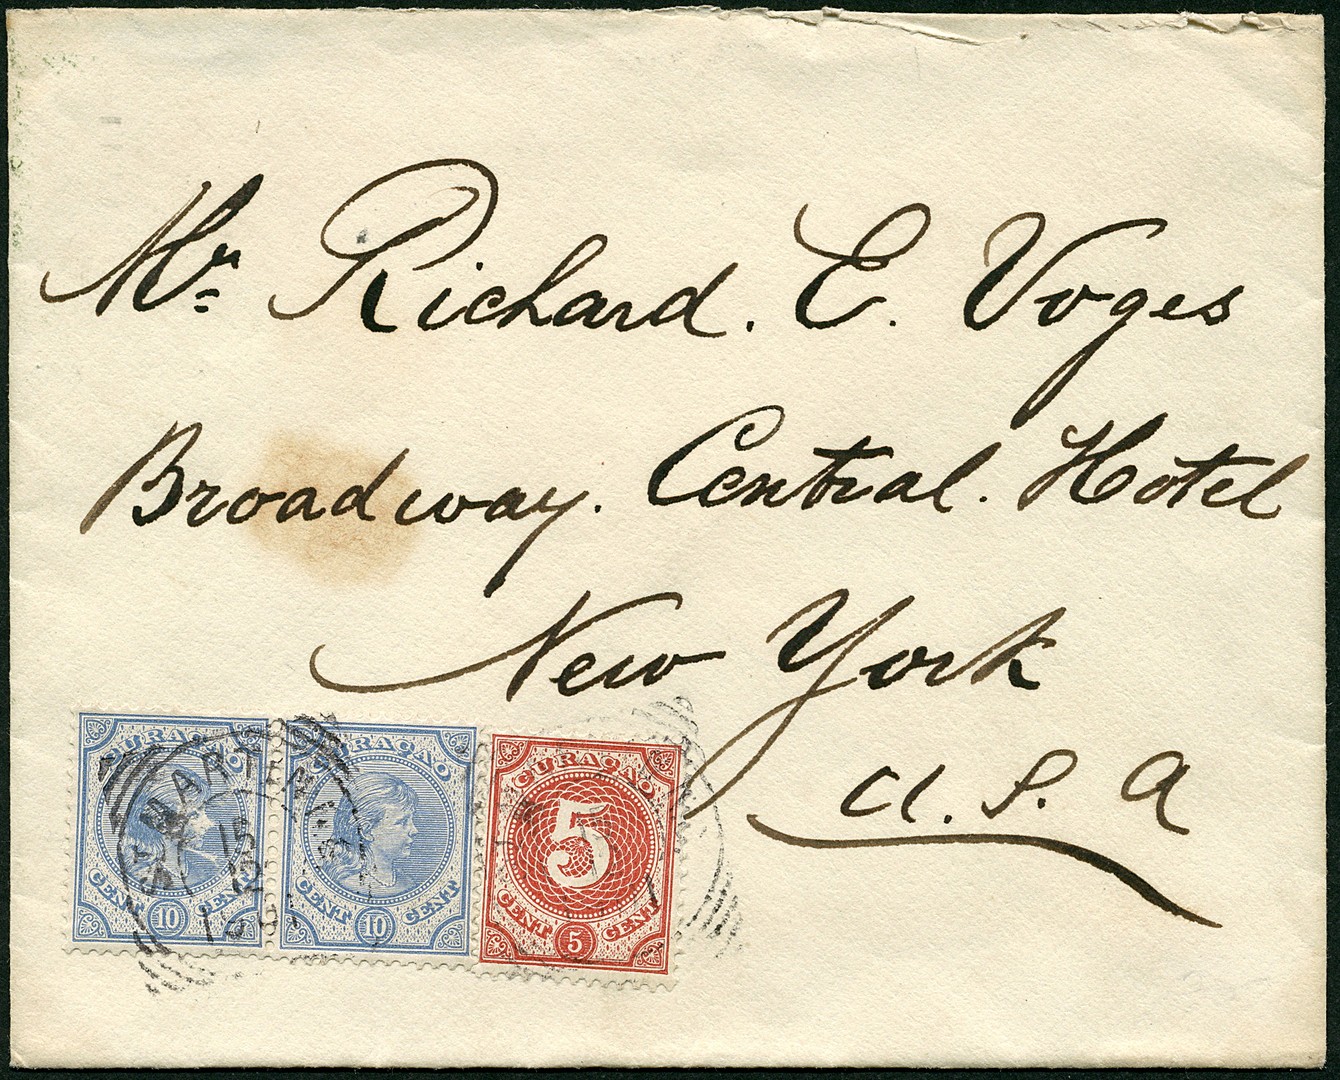 Mr Richard. E. Voges
Broadway. Central. Hotel
New York
U. S. A
CURAÇAO
CENT 10 CENT
CURAÇAO
CENT 10 CENT
CURAÇAO
5
CENT 5 CENT
ST MAARTEN
15